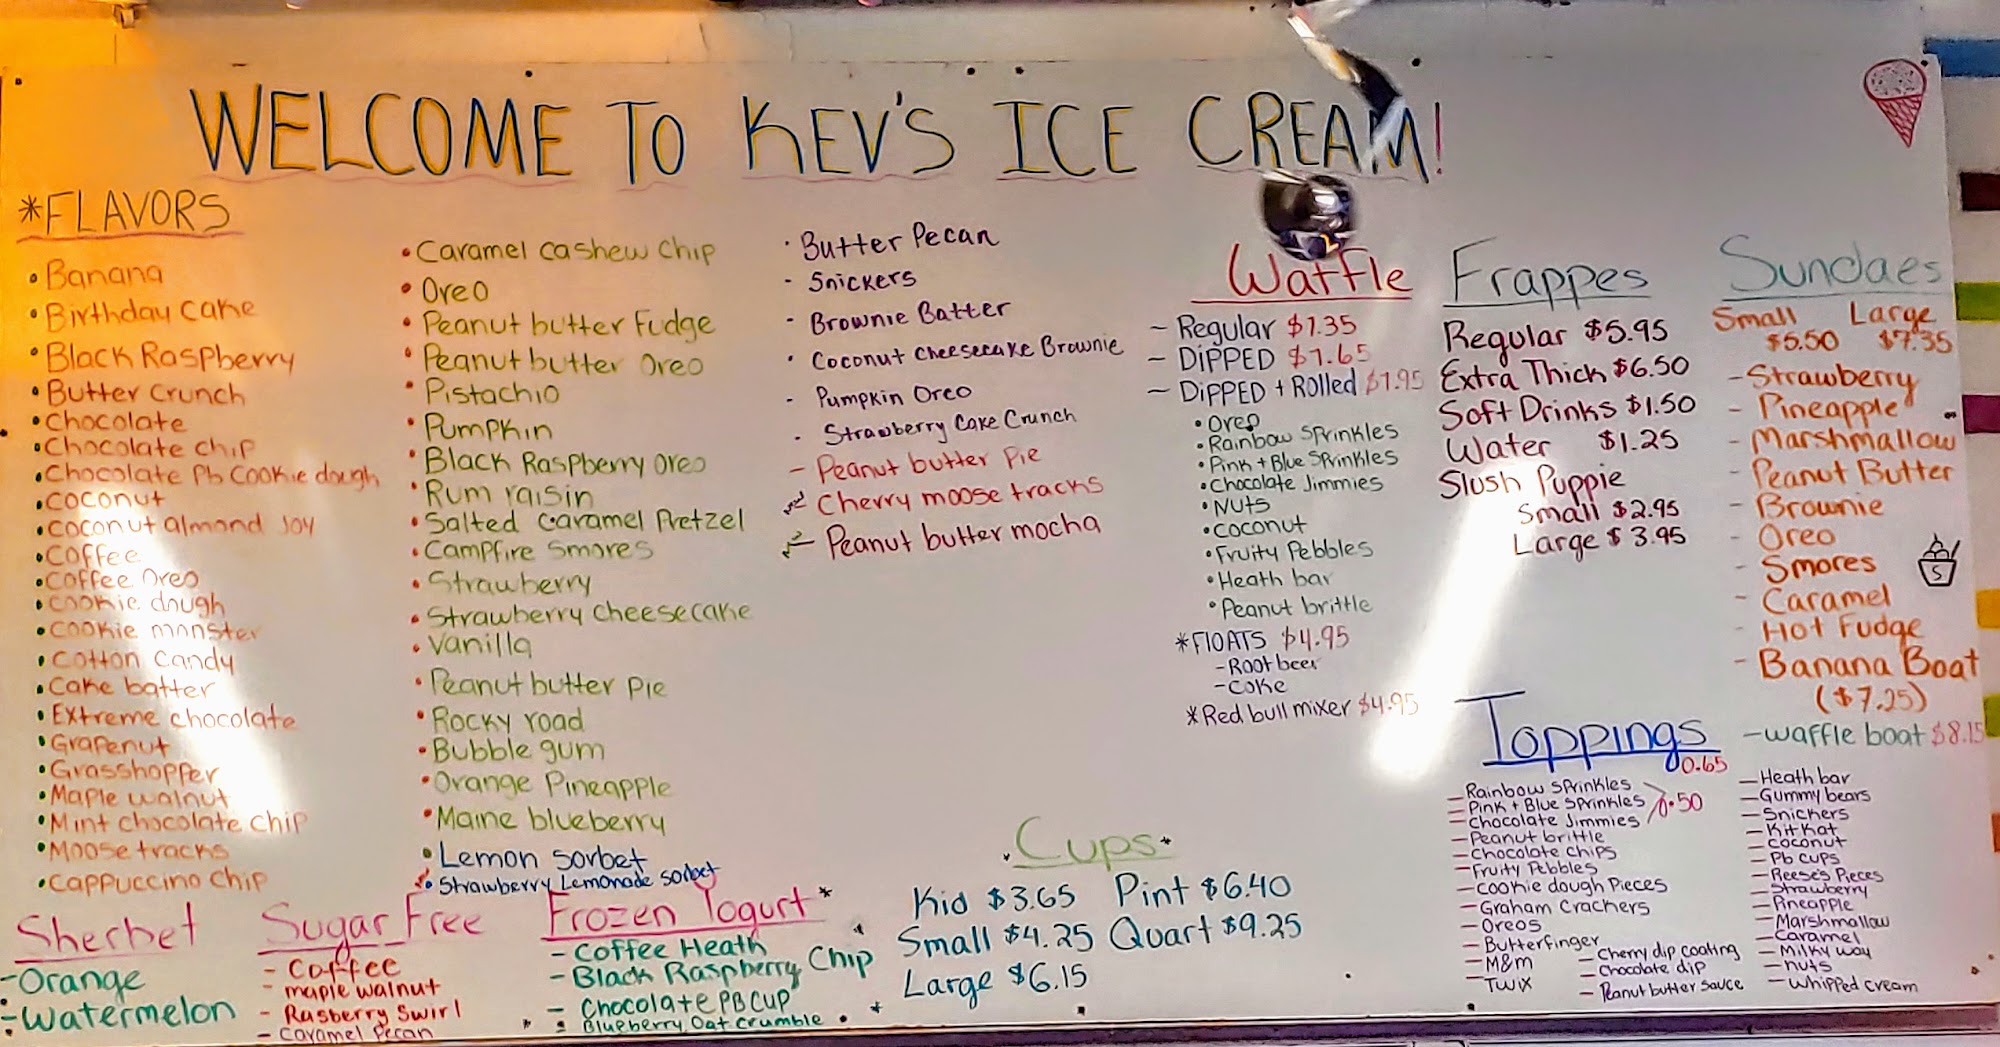 WELCOME TO KEV'S ICE CREAM!
*FLAVORS
• Banana
• Birthday cake
• Black Raspberry
• Butter Crunch
• Chocolate
• Chocolate chip
• Chocolate Pb Cookie dough
• Coconut
• Coconut almond Joy
• Coffee
• Coffee Oreo
• Cookie dough
• Cookie monster
• Cotton candy
• Cake batter
• Extreme chocolate
• Grapenut
• Grasshopper
• Maple walnut
• Mint chocolate chip
• Moose tracks
• Cappuccino chip
• Caramel cashew chip
• Oreo
• Peanut butter Fudge
• Peanut butter Oreo
• Pistachio
• Pumpkin
• Black Raspberry Oreo
• Rum raisin
• Salted Caramel Pretzel
• Campfire Smores
• Strawberry
• Strawberry cheesecake
• Vanilla
• Peanut butter pie
• Rocky road
• Bubble gum
• Orange Pineapple
• Maine blueberry
• Lemon sorbet
• Strawberry Lemonade sorbet
• Butter Pecan
- Snickers
- Brownie Batter
• Coconut cheesecake Brownie
- Pumpkin Oreo
- Strawberry Cake Crunch
- Peanut butter pie
Cherry moose tracks
Peanut butter mocha
Waffle
- Regular $7.35
- DIPPED $7.65
- DIPPED + Rolled $7.95
• Oreo
• Rainbow Sprinkles
• Pink + Blue Sprinkles
• Chocolate Jimmies
• Nuts
• Coconut
• Fruity Pebbles
• Heath bar
• Peanut brittle
*FlOATS $4.95
- Root beer
- Coke
*Red bull mixer $4.95
Frappes
Regular $5.95
Extra Thick $6.50
Soft Drinks $1.50
Water $1.25
Slush Puppie
Small $2.95
Large $3.95
Sundaes
Small Large
$5.50 $7.35
- Strawberry
- Pineapple
- Marshmallow
- Peanut Butter
- Brownie
- Oreo
- Smores
- Caramel
- Hot Fudge
- Banana Boat
($7.25)
- waffle boat $8.15
S
Toppings
0.65
- Rainbow Sprinkles
- Pink + Blue Sprinkles 0.50
- Chocolate Jimmies
- Peanut brittle
- Chocolate chips
- Fruity Pebbles
- Cookie dough Pieces
- Graham Crackers
- Oreos
- Butterfinger
- M&m
- Twix
- Cherry dip coating
- Chocolate dip
- Peanut butter sauce
- Heath bar
- Gummy bears
- Snickers
- KitKat
- Coconut
- Pb cups
- Reese's Pieces
- Strawberry
- Pineapple
- Marshmallow
- Caramel
- Milky way
- nuts
- Whipped cream
Sherbet
- Orange
- Watermelon
Sugar Free
- Coffee
- maple walnut
- Rasberry Swirl
- Caramel Pecan
Frozen Yogurt*
- Coffee Heath
- Black Raspberry Chip
- Chocolate PB CUP
Blueberry Oat crumble
Cups
Kid $3.65 Pint $6.40
Small $4.25 Quart $9.25
Large $6.15